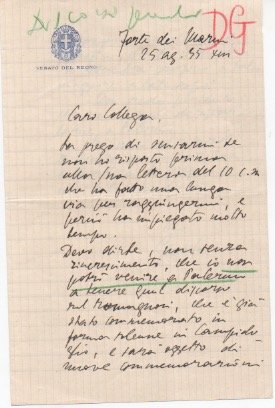 DG
SENATO DEL REGNO
Forte dei Marmi
25 ag. 35 XIII
Caro Collega,
La prego di scusarmi se
non ho risposto prima
alla Sua lettera del 10 c.m
che ha fatto una lunga
via per raggiungermi, e
perciò ha impiegato molto
tempo.
Devo dirle, non senza
rincrescimento, che io non
potrò venire a Palermo
a tenere quel discorso
sul Romagnosi, che è già
stato commemorato in
forma solenne in Campido
glio, e sarà oggetto di
nuove commemorazioni